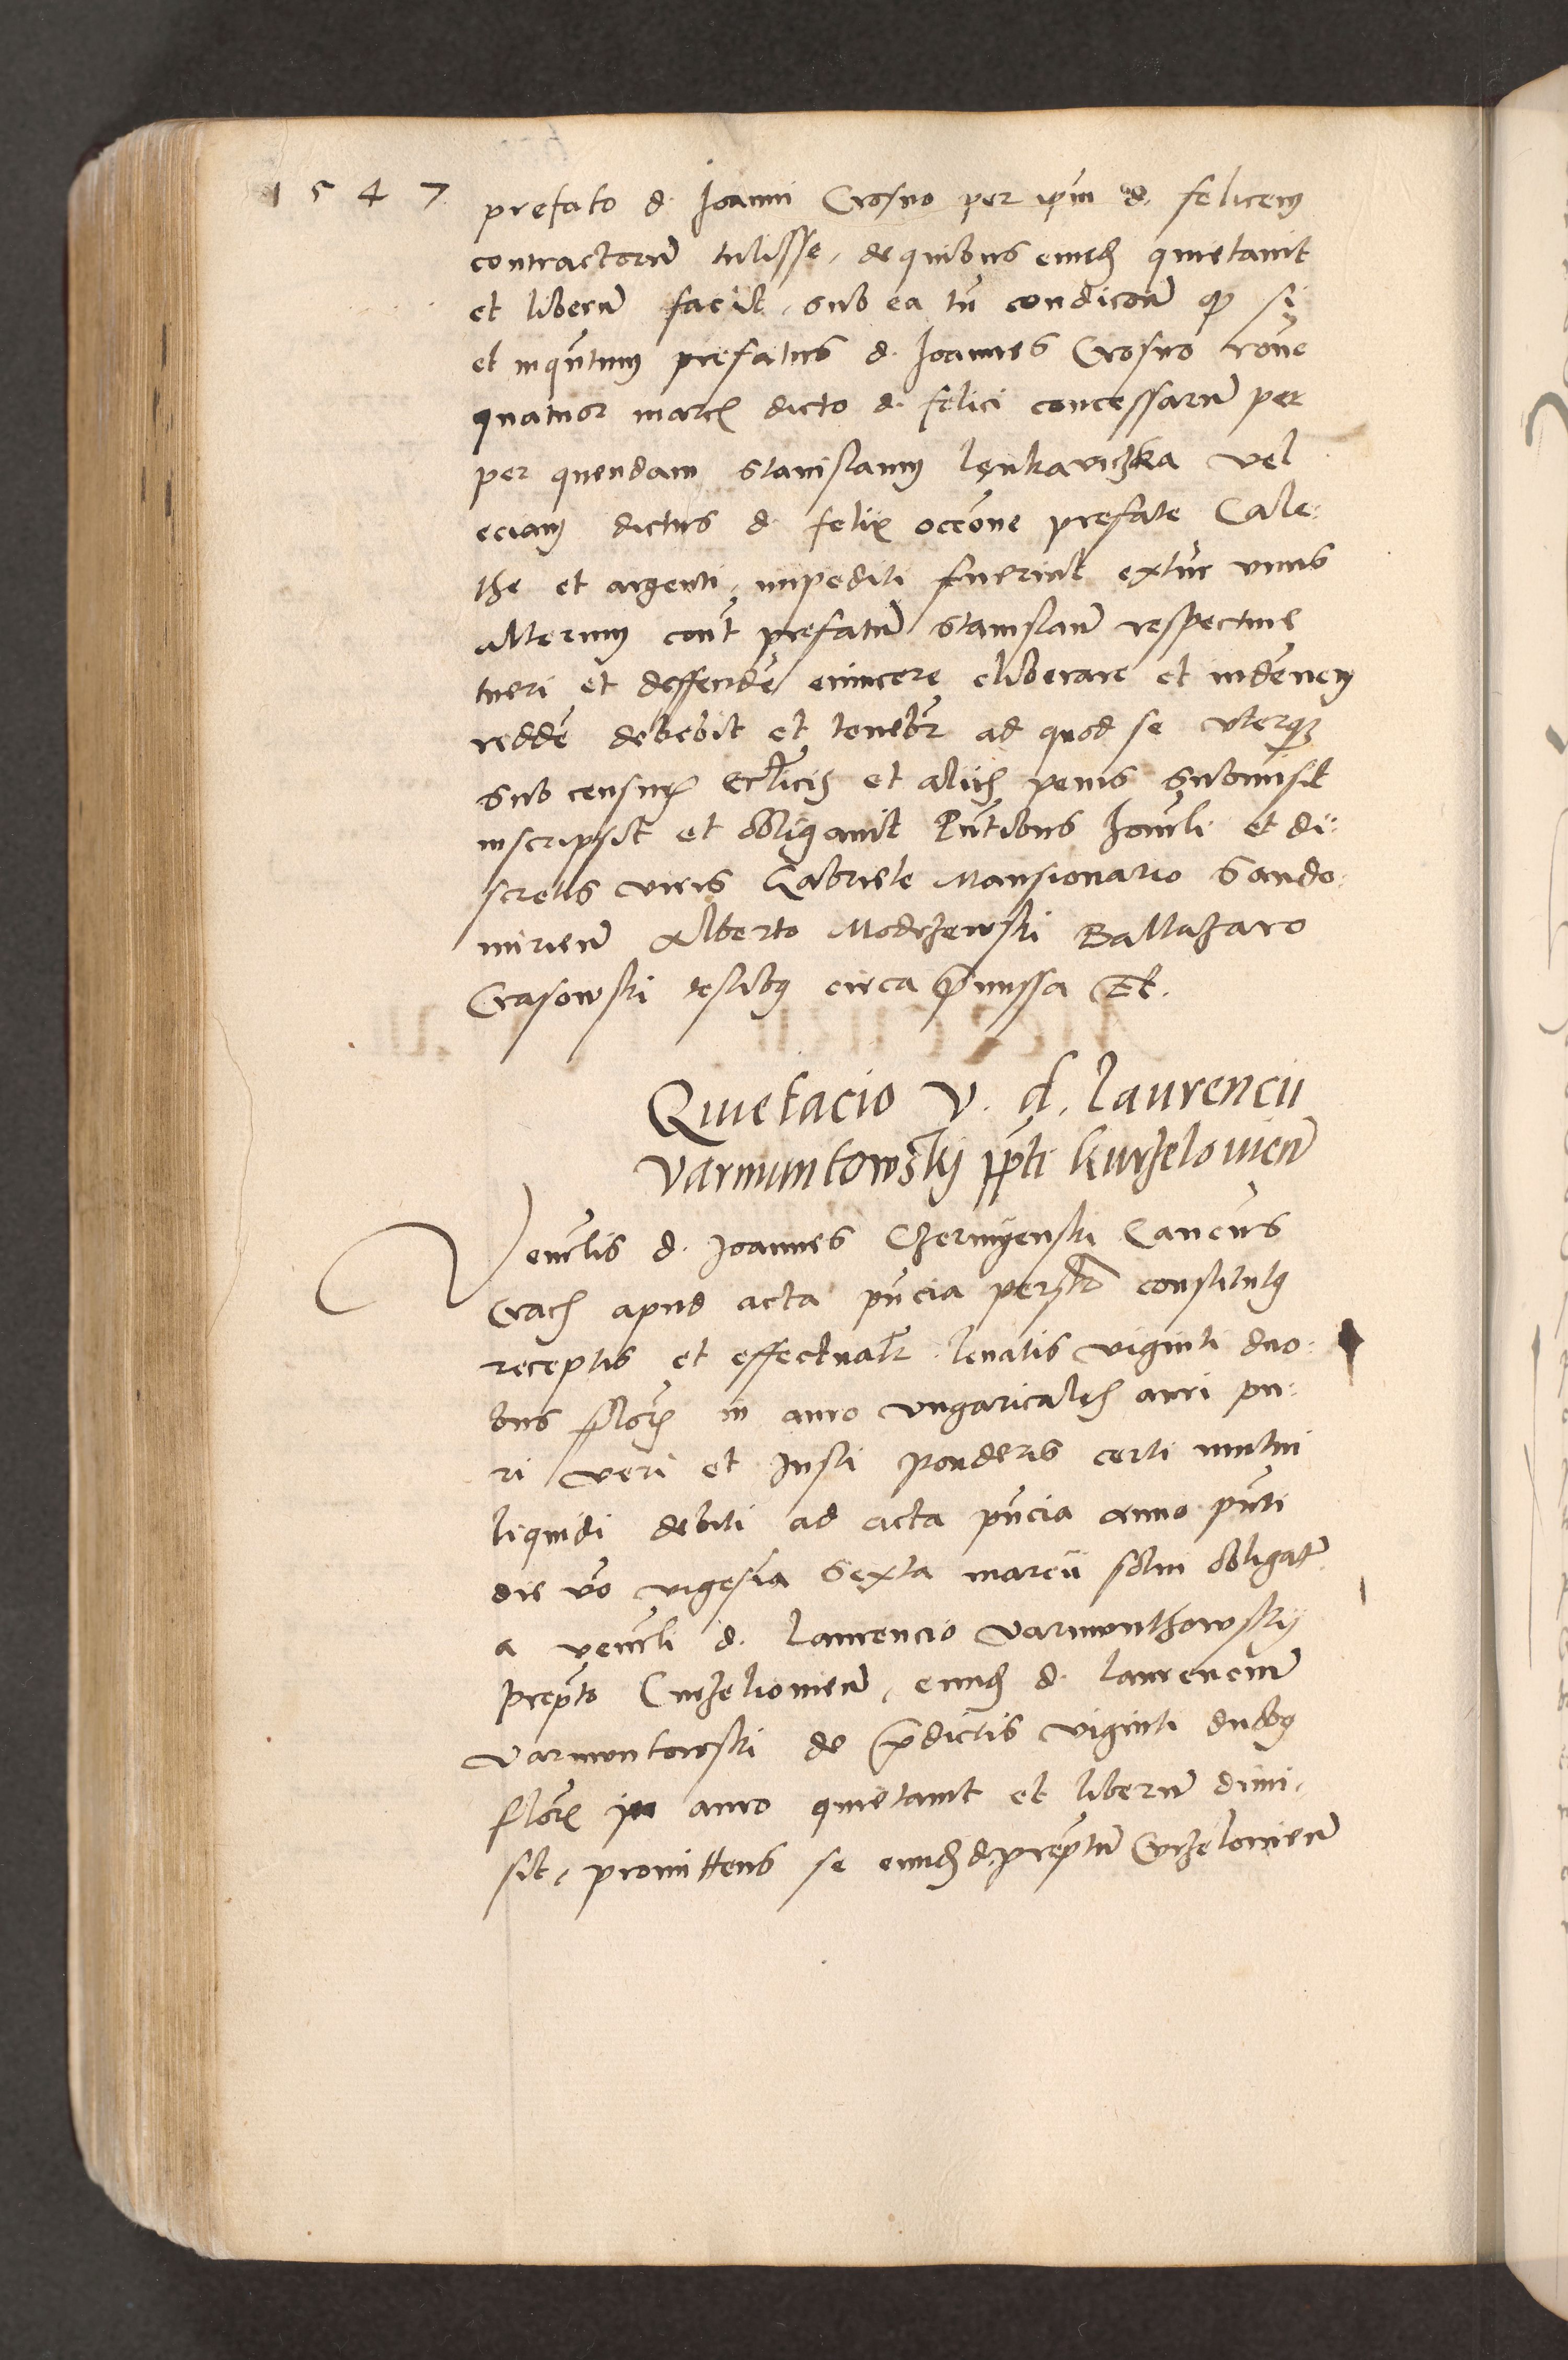 1547
prefato d. Joanni Crosno per ipm d. felicem
contractorum tulisse, de quibus eundem quietavit
et liberum facit, sub ea tn condicione q si
et inqntum prefatus d. Joannes Crosno rone
quatuor marcis dicto d. felici concessarum per
per quendam Stanislaum Lenkavichka vel
eciam dictus d. felix occone prefate Cale-
the et argenti, impediti fuerint extunc unus
alterum cont prefatum Stanislaum respective
tueri et deffendere evincere eliberare et indemnem
reddere debebit et tenebr ad quod se uterq
sub censuris Ecclicis et aliis penis submisit
inscripsit et obligavit Pntibus honrli et di-
scretis viris Gabriele Mansionario Sando-
mirien Alberto Modrzewski Baltazaro
Crasowski testibus circa premissa Et.
Quietacio V. d. Laurencii
Varmuntowskij ppti Kurzelovien
Venrlis d. Joannes Czermyenski Cancus
Crac apud acta pncia personalr constitutus
receptis et effectualr levatis viginti duo-
bus floris in auro ungaricalis auri pu-
ri veri et Justi ponderis certi mutui
liquidi debiti ad acta pncia anno pnti
die vo vigesima sexta marcii solvi obligatis
a venrli d. Laurencio Varmonthowskij
Prepto Curzeliovien, eundem d. Laurencium
Varmontowski de predictis viginti duobus
floris in auro quietavit et liberum dimi-
sit, promittens se eundem d. preptum Curzelovien